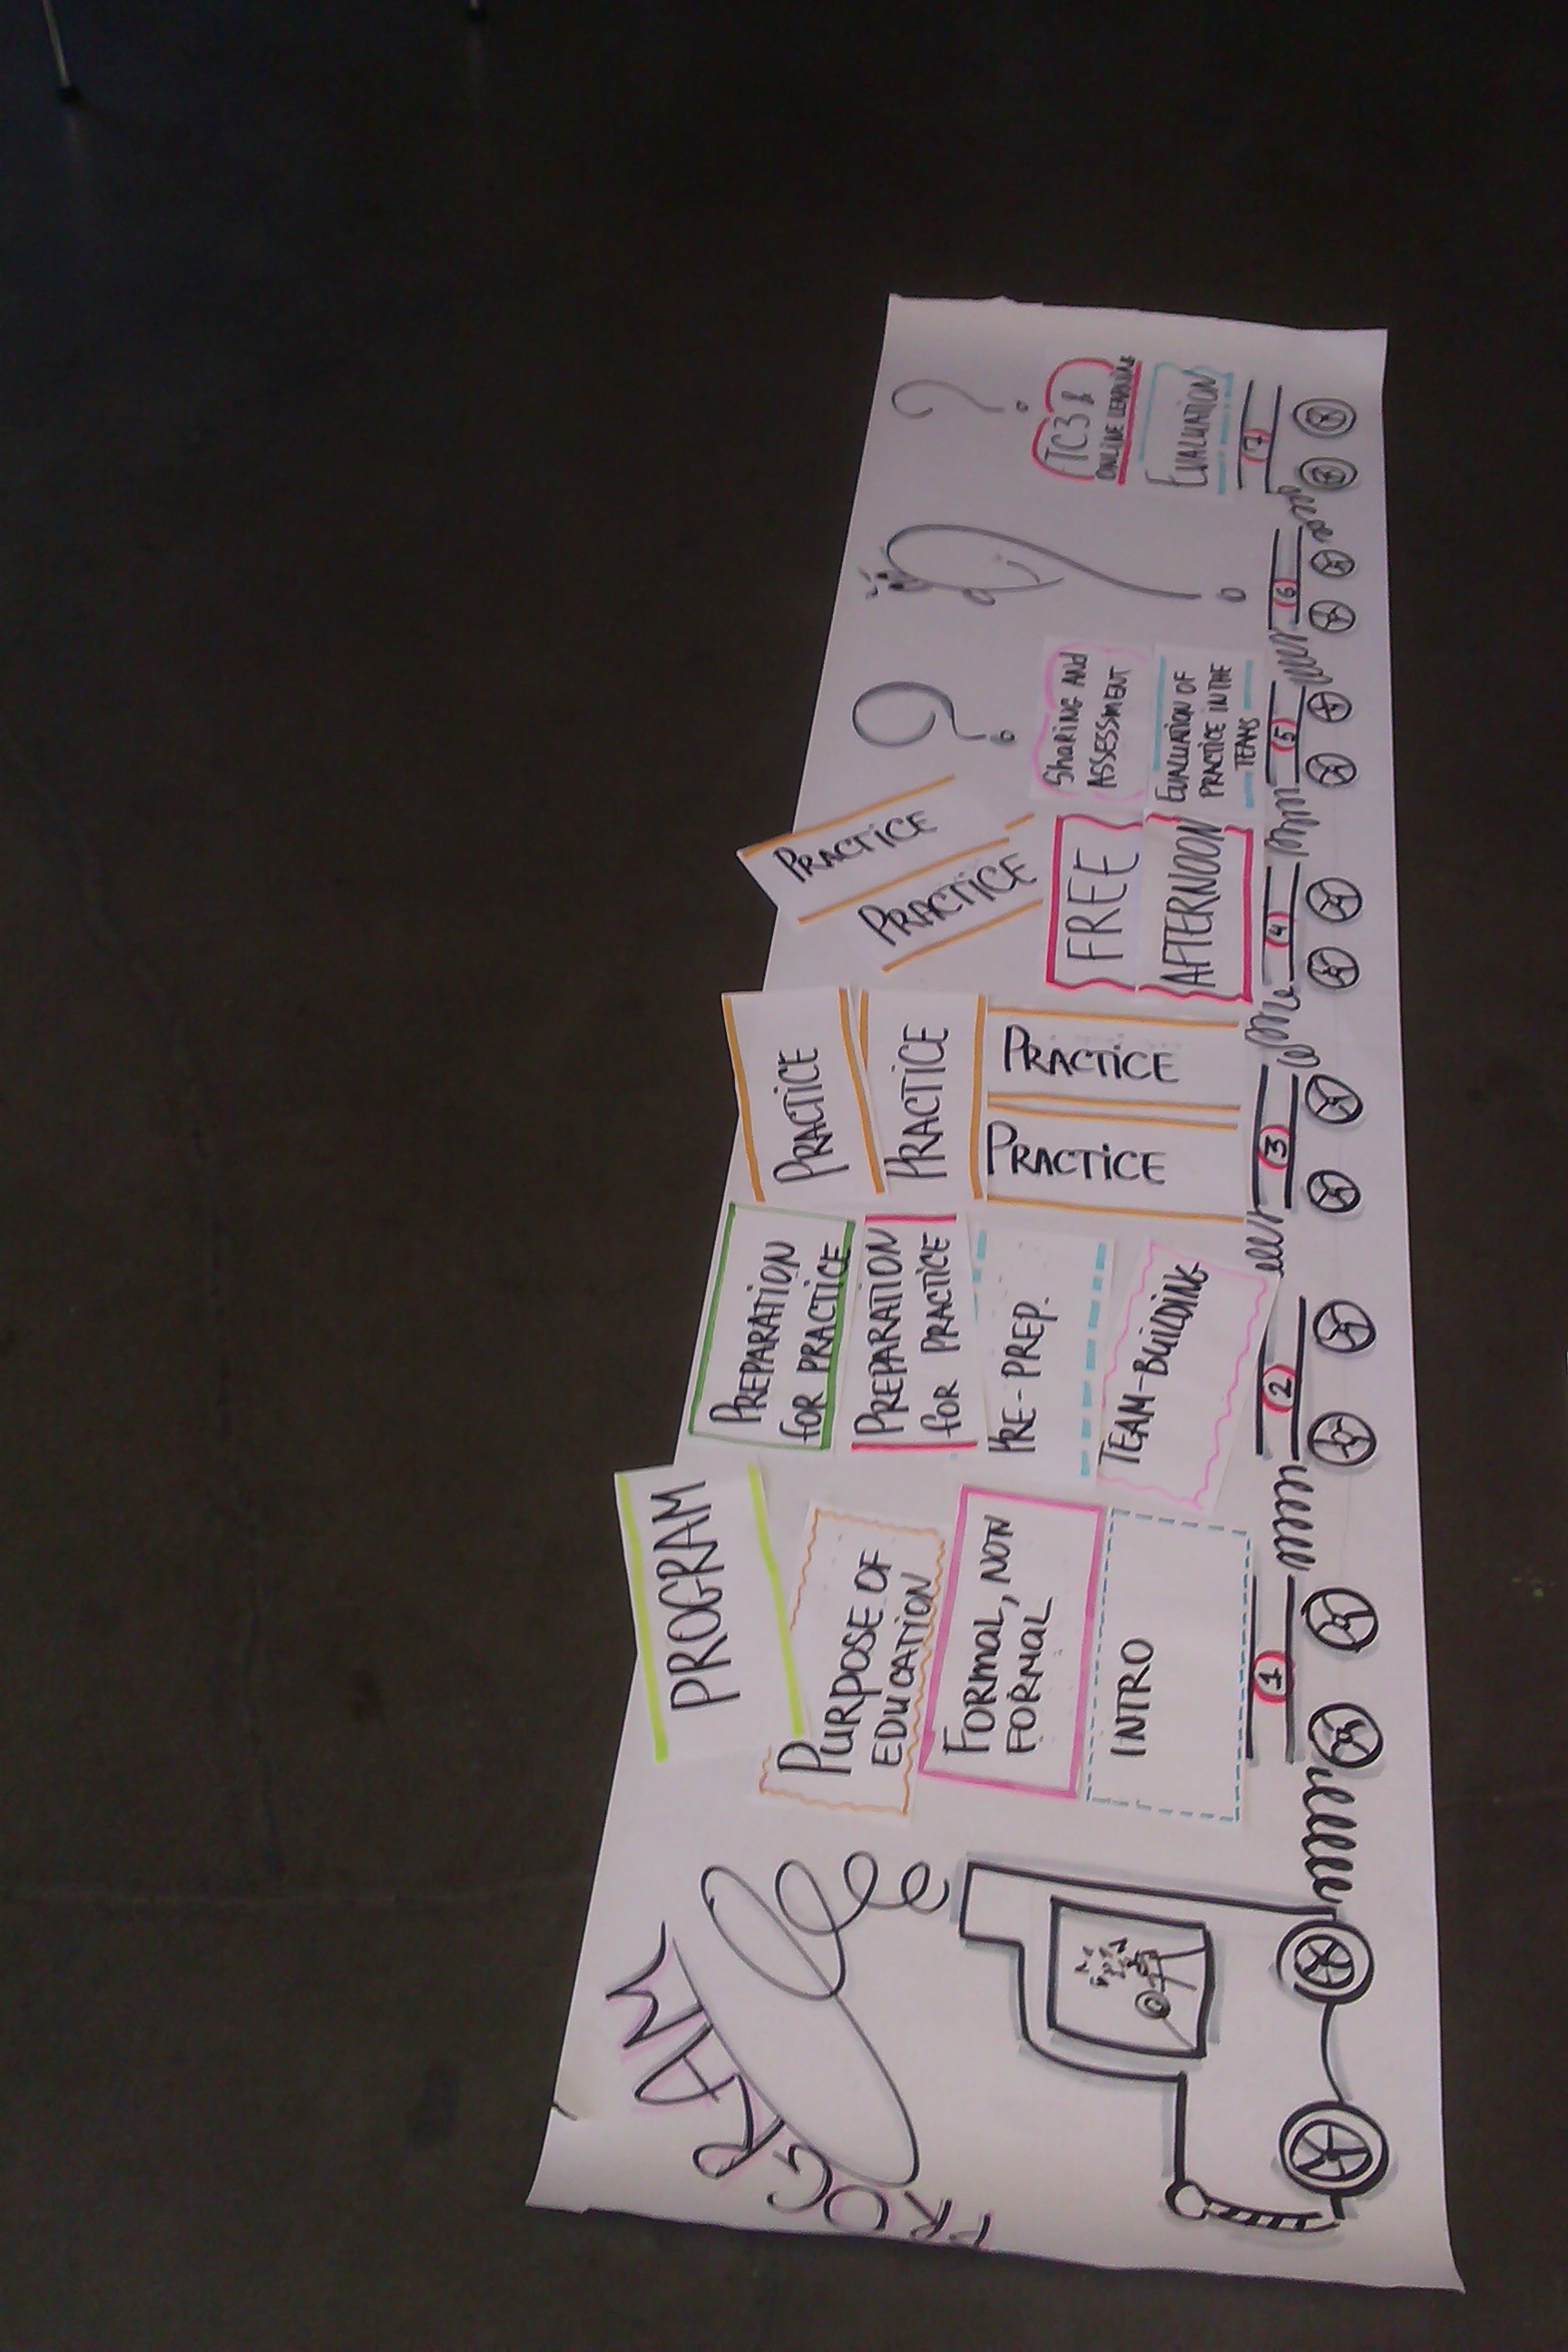 PROGRAM
PROGRAM
PURPOSE OF
EDUCATION
FORMAL, NON
FORMAL
INTRO
1
PREPARATION
FOR PRACTICE
PREPARATION
FOR PRACTICE
PRE-PREP.
TEAM-BUILDING
2
PRACTICE
PRACTICE
PRACTICE
PRACTICE
3
PRACTICE
PRACTICE
FREE
AFTERNOON
4
?
SHARING AND
ASSESSMENT
EVALUATION OF
PRACTICE IN THE
TEAMS
5
?
6
?
TC3 &
ONLINE LEARNING
EVALUATION
7